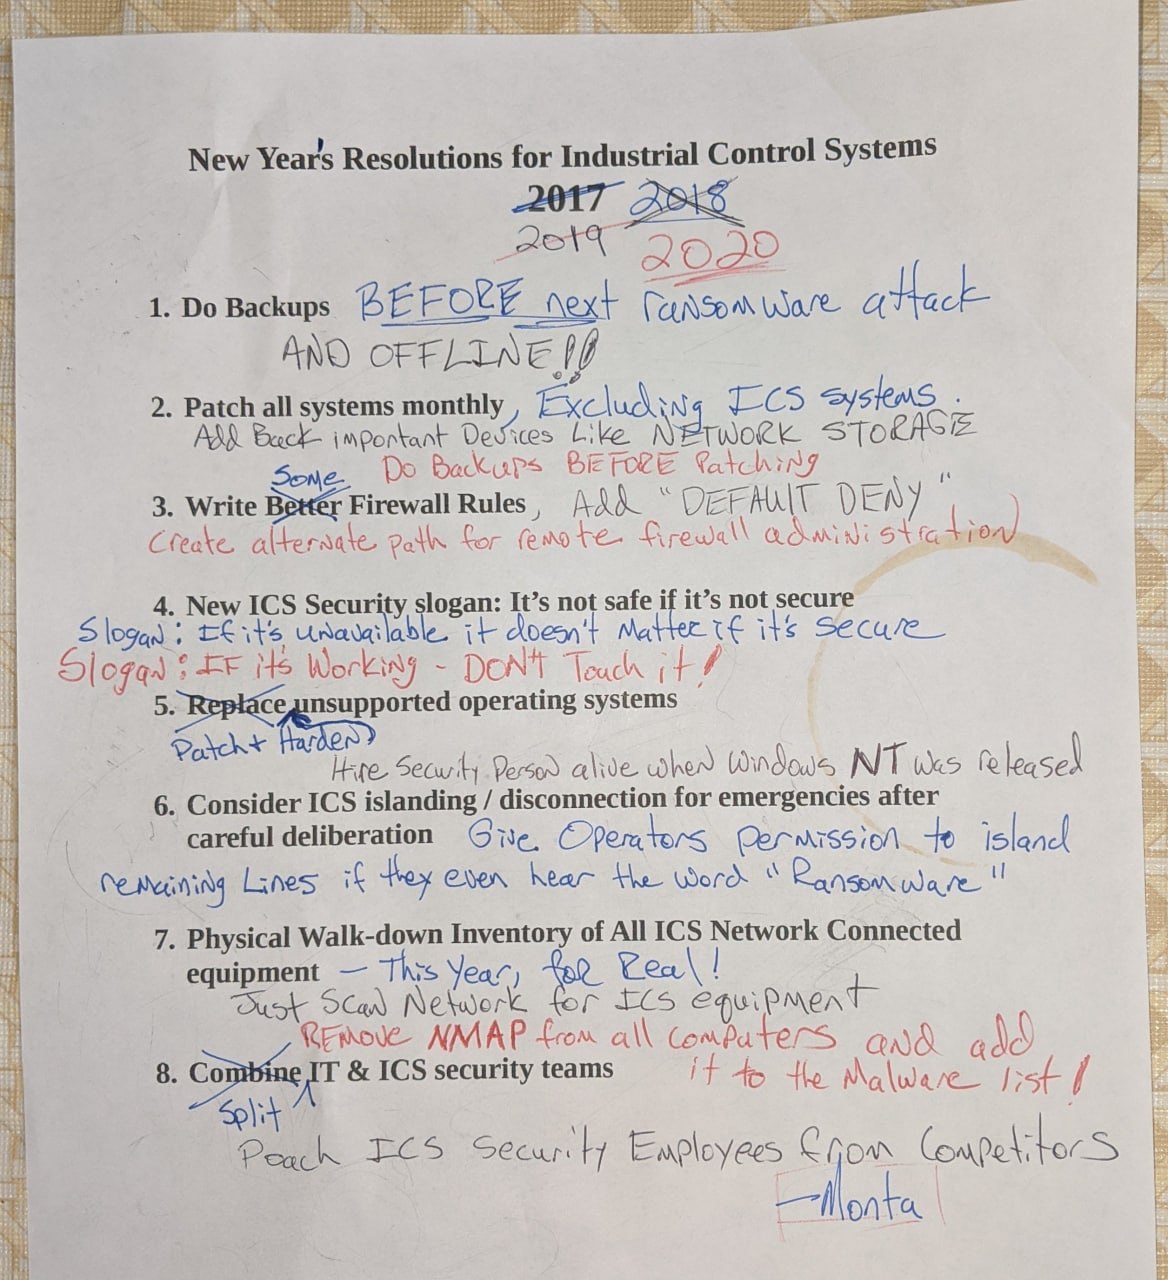 New Year's Resolutions for Industrial Control Systems
2017 2018
2019 2020
1. Do Backups BEFORE next ransomware attack
AND OFFLINE!!
2. Patch all systems monthly, Excluding ICS systems.
Add Back important Devices Like NETWORK STORAGE
Do Backups BEFORE Patching
Some
3. Write Better Firewall Rules, Add "DEFAULT DENY"
Create alternate path for remote firewall administration
4. New ICS Security slogan: It's not safe if it's not secure
Slogan: If it's unavailable it doesn't Matter if it's secure
Slogan: IF it's Working - DON't Touch it!
5. Replace unsupported operating systems
Patch + Harden
Hire Security Person alive when Windows NT was released
6. Consider ICS islanding / disconnection for emergencies after
careful deliberation Give Operators permission to island
remaining Lines if they even hear the word "Ransomware"
7. Physical Walk-down Inventory of All ICS Network Connected
equipment – This Year, for Real!
Just Scan Network for ICS equipment
REMOVE NMAP from all computers and add
8. Combine IT & ICS security teams it to the Malware list!
Split
Poach ICS Security Employees from Competitors
-Monta